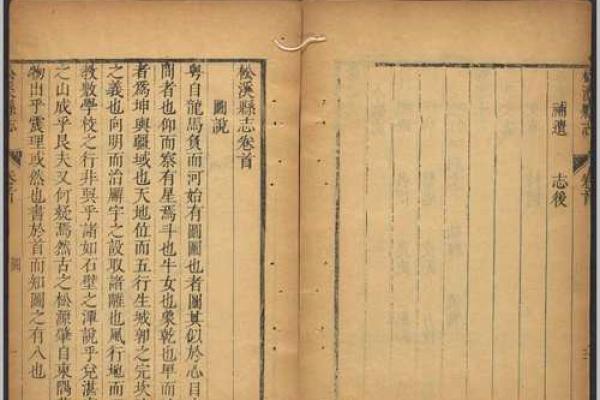 松溪縣志 卷首
補遺 志後
松溪縣志卷首
圖說
粵自龍馬負而河始有圖圖也者圖其似於心目
間者也仰而察有星焉斗也牛女也象乾也卑而
者爲坤輿疆域也天地位而五行生城郭之完坎
之義也向明而治廨宇之設取諸離也風行地而
教敷學校之行非巽乎諸如石壁之潭說乎兌湛
之山成乎艮夫又何疑焉然古之松源肇自東隅
物出乎震理或然也書於首而知圖之有八也
松溪縣志 卷首 圖 一